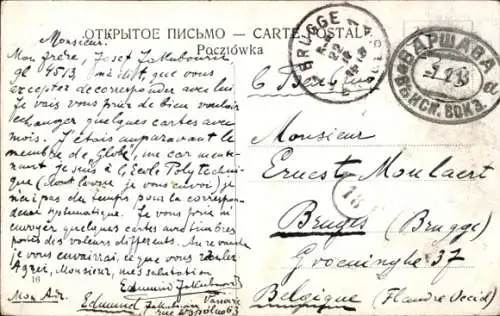 ОТКРЫТОЕ ПИСЬМО – CARTE POSTALE
Pocztówka
Monsieur.
Mon frère, Josef Jakubowicz
gl 4513 m'a dit, que vous
acceptez de correspondre avec lui
Je vais vous prier de bien vouloir
echanger quelques cartes avec
mois. J'étais auparavant le
membre de "Globe", mr car mainte-
nant je suis à l'Ecole Polytechni-
que (dont vous je vous envoi) je
n'ai pas du temps pour la correspon-
dence systematique. Je vous prie de
envoyer quelques cartes avec timbres
postes des valeurs differents. Au revanche
je vous enverrai, ce que vous voulez
Agréz, Monsieur, mes salutations
Edmund Jakubowicz
16
Mon Adr. Edmund Jakubowicz Varsovie
rue 63
BRUGGE
BRUGES
ВАРШАВА
ВѢНСК. ВОКЗ.
Monsieur
Ernest Moulaert
13
Bruges (Brugge)
Groeninghe 37
Belgique (Flandre Occid)